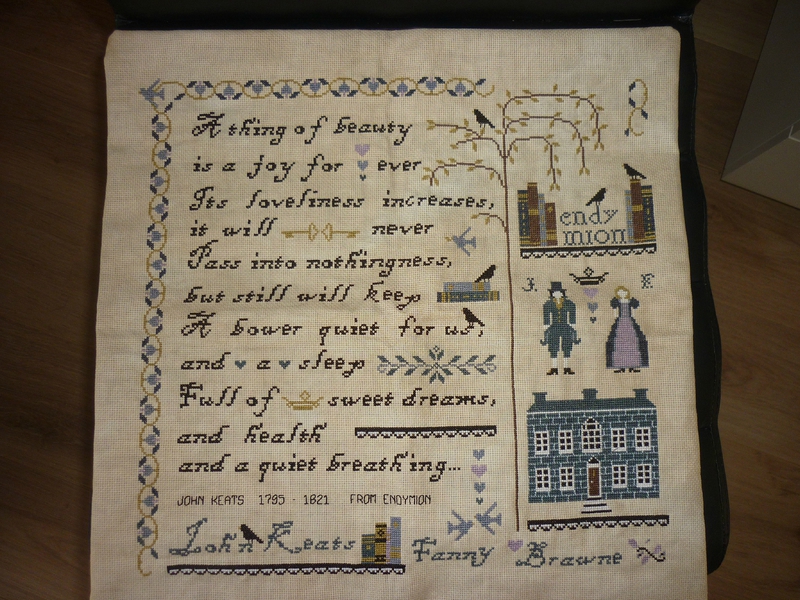 A thing of beauty
is a joy for ever
Its loveliness increases,
it will never
Pass into nothingness,
but still will keep
A bower quiet for us,
and a sleep
Full of sweet dreams,
and health
and a quiet breathing...
JOHN KEATS 1795 - 1821 FROM ENDYMION
John Keats Fanny Brawne
endy
mion
J. F.